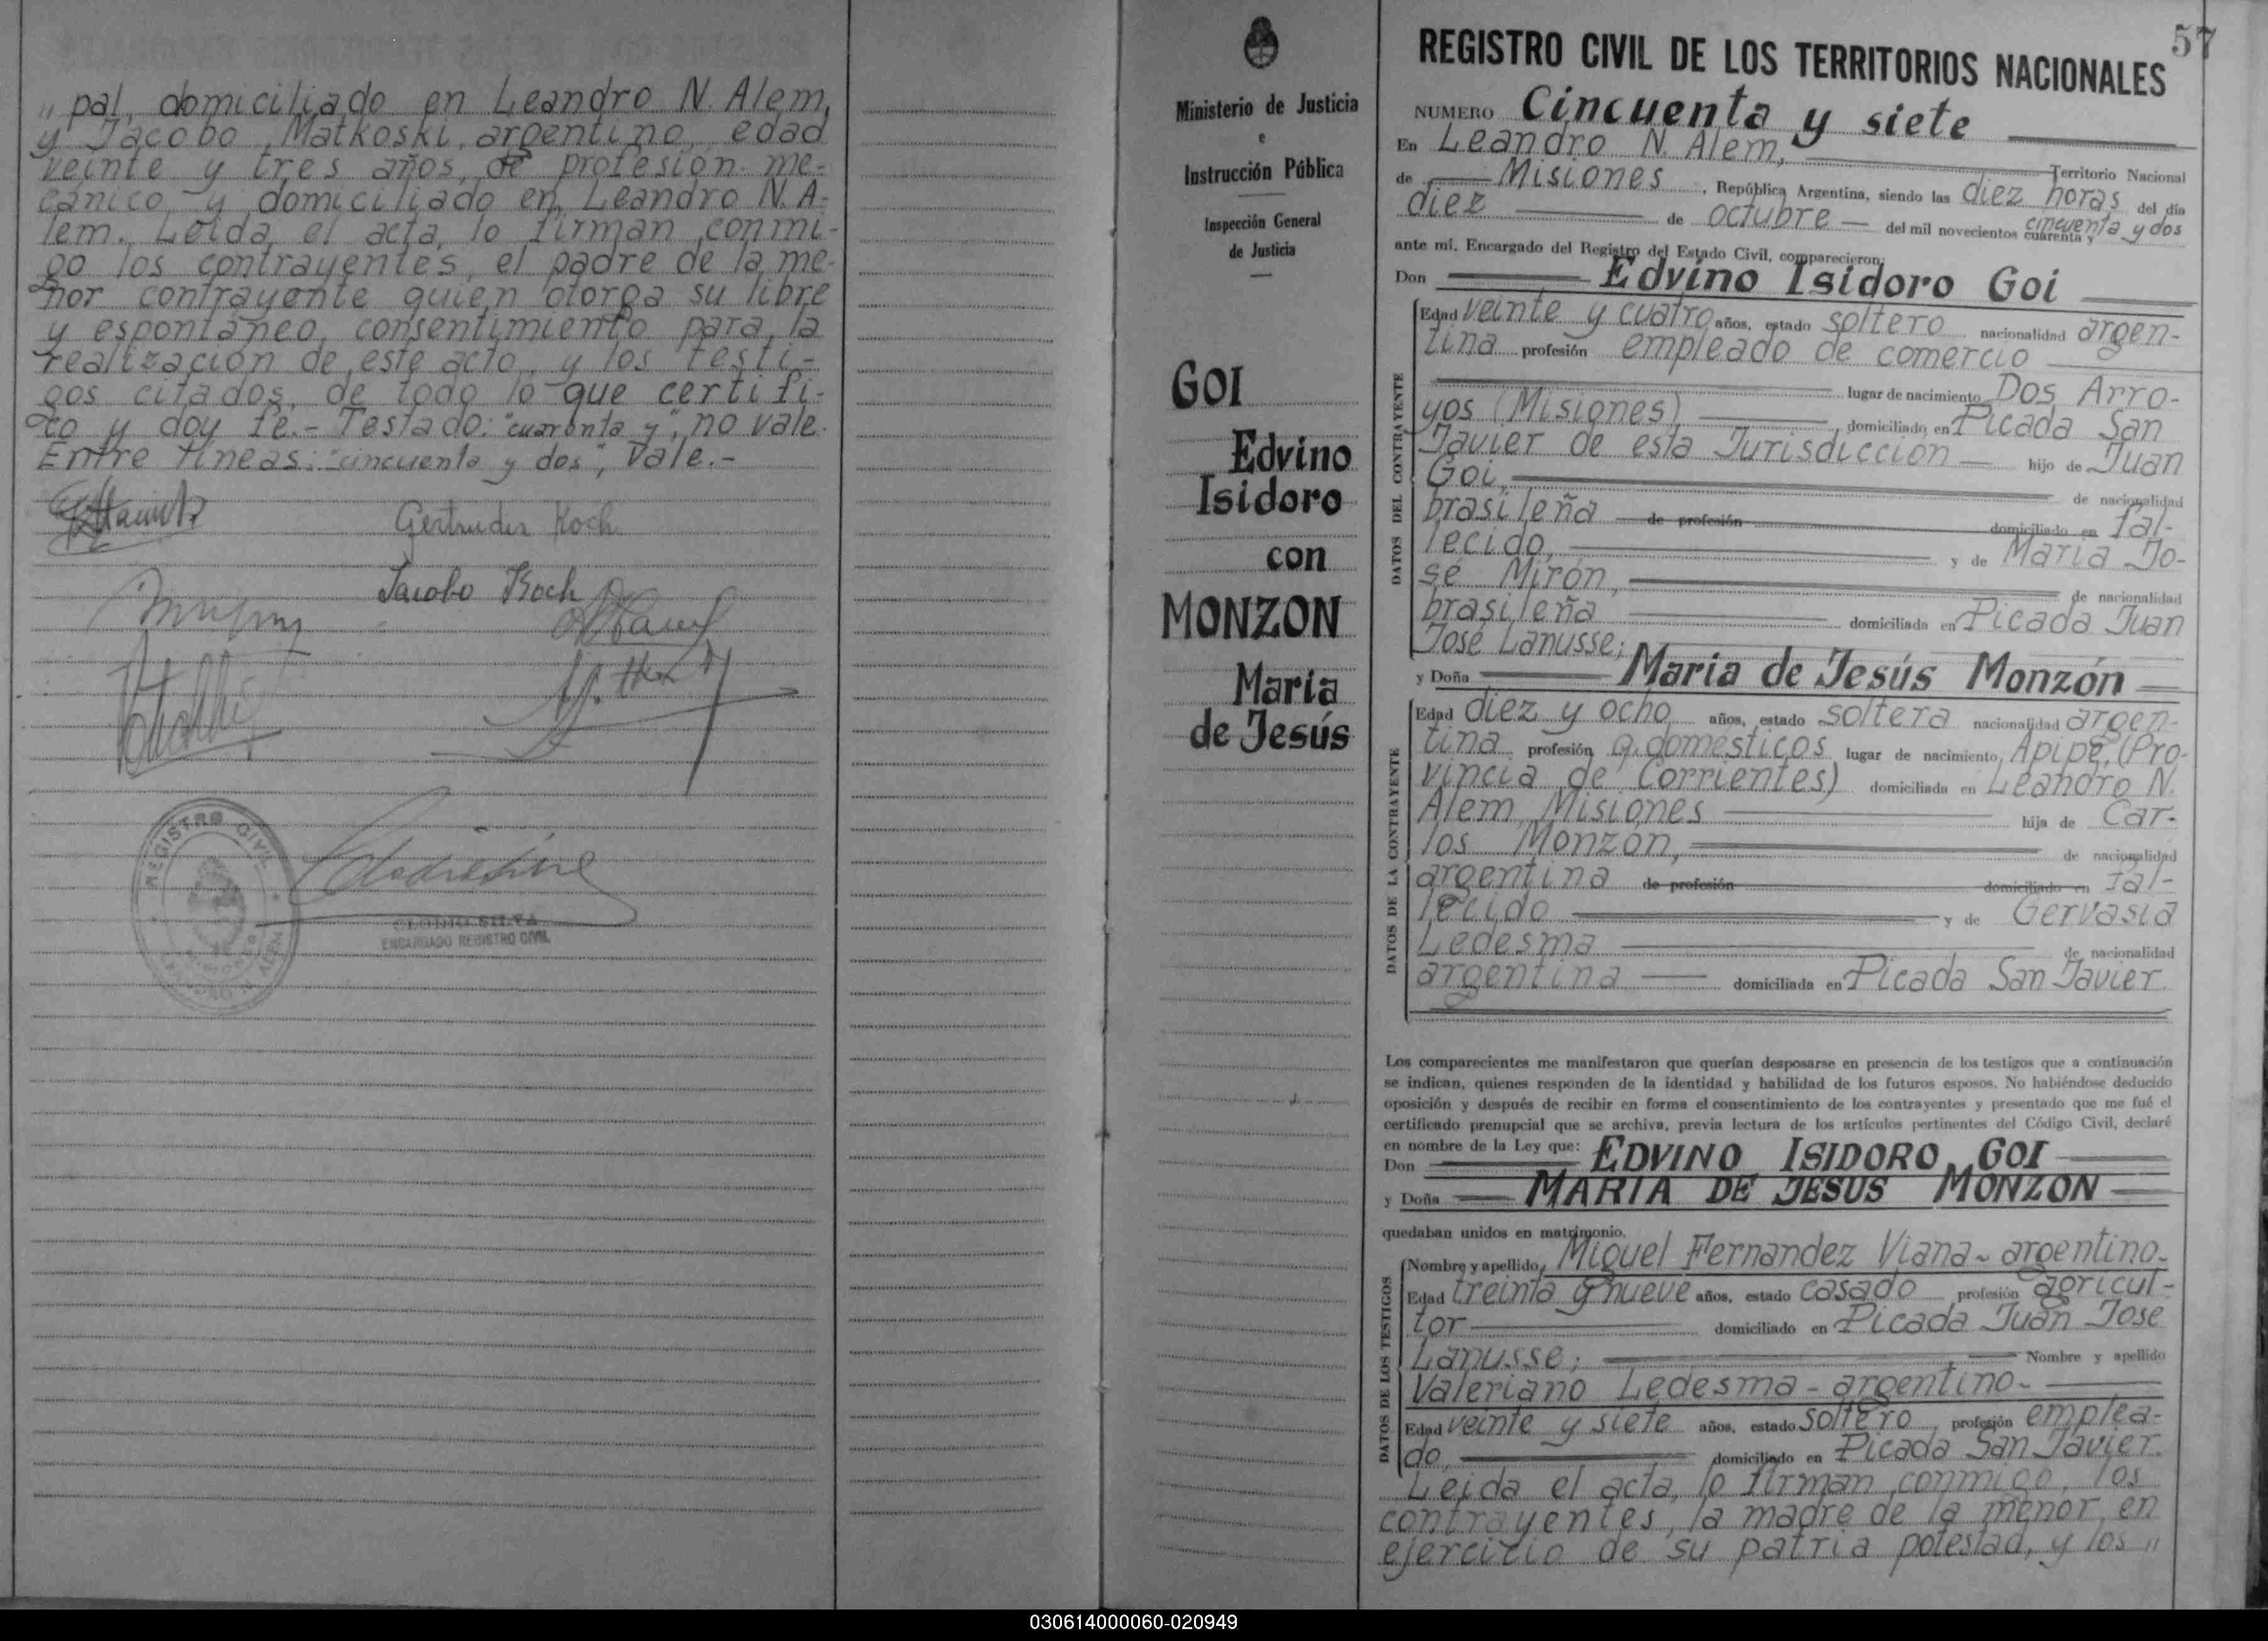 „ pal, domiciliado en Leandro N. Alem,
y Jacobo Matkoski, argentino, edad
veinte y tres años, de profesión me-
cánico y domiciliado en Leandro N. A-
lem. Leída el acta, lo firman conmi-
go los contrayentes, el padre de la me-
nor contrayente quien otorga su libre
y espontáneo consentimiento para la
realización de este acto, y los testi-
gos citados, de todo lo que certifi-
co y doy fe.- Testado: "cuarenta y", no vale.
Entre líneas: "cincuenta y dos", Vale.-
Gertrudis Koch
Jacobo Koch
REGISTRO CIVIL
LEANDRO N. ALEM
CLODIO SILVA
ENCARGADO REGISTRO CIVIL
Ministerio de Justicia
e
Instrucción Pública
Inspección General
de Justicia
GOI
Edvino
Isidoro
con
MONZON
Maria
de Jesús
57
REGISTRO CIVIL DE LOS TERRITORIOS NACIONALES
NUMERO Cincuenta y siete
En Leandro N. Alem, Territorio Nacional
de Misiones, República Argentina, siendo las diez horas del día
diez de octubre del mil novecientos cuarenta y cincuenta y dos
ante mí, Encargado del Registro del Estado Civil, comparecieron:
Don Edvino Isidoro Goi
DATOS DEL CONTRAYENTE
Edad veinte y cuatro años, estado soltero nacionalidad argen-
tina profesión empleado de comercio
lugar de nacimiento Dos Arro-
yos (Misiones), domiciliado en Picada San
Javier de esta Jurisdicción hijo de Juan
Goi, de nacionalidad
brasileña de profesión domiciliado en fal-
lecido, y de Maria Jo-
sé Mirón, de nacionalidad
brasileña domiciliada en Picada Juan
José Lanusse;
y Doña Maria de Jesús Monzón
DATOS DE LA CONTRAYENTE
Edad diez y ocho años, estado soltera nacionalidad argen-
tina profesión q. domésticos lugar de nacimiento, Apipé, (Pro-
vincia de Corrientes) domiciliada en Leandro N.
Alem, Misiones hija de Car-
los Monzón, de nacionalidad
argentina de profesión domiciliado en fal-
lecido y de Gervasia
Ledesma de nacionalidad
argentina domiciliada en Picada San Javier.
Los comparecientes me manifestaron que querían desposarse en presencia de los testigos que a continuación
se indican, quienes responden de la identidad y habilidad de los futuros esposos. No habiéndose deducido
oposición y después de recibir en forma el consentimiento de los contrayentes y presentado que me fué el
certificado prenupcial que se archiva, previa lectura de los artículos pertinentes del Código Civil, declaré
en nombre de la Ley que:
Don EDVINO ISIDORO GOI
y Doña MARIA DE JESUS MONZON
quedaban unidos en matrimonio.
DATOS DE LOS TESTIGOS
Nombre y apellido, Miguel Fernandez Viana - argentino-
Edad treinta y nueve años, estado casado profesión agricul-
tor domiciliado en Picada Juan Jose
Lanusse; Nombre y apellido
Valeriano Ledesma - argentino-
Edad veinte y siete años, estado soltero, profesión emplea-
do, domiciliado en Picada San Javier.
Leida el acta, lo firman conmigo, los
contrayentes, la madre de la menor en
ejercicio de su patria potestad, y los „
030614000060-020949